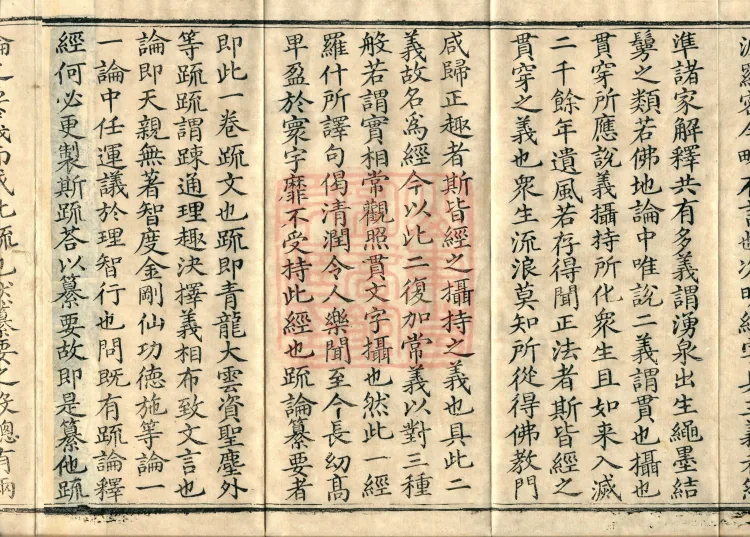 準諸家解釋共有多義謂湧泉出生繩墨結
鬘之類若佛地論中唯說二義謂貫也攝也
貫穿所應說義攝持所化眾生且如来入滅
二千餘年遺風若存得聞正法者斯皆經之
貫穿之義也眾生流浪莫知所從得佛教門
咸歸正趣者斯皆經之攝持之義也具此二
義故名爲經今以此二復加常義以對三種
般若謂實相常觀照貫文字攝也然此一經
羅什所譯句偈清潤令人樂聞至今長幼高
卑盈於寰宇靡不受持此經也疏論纂要者
即此一卷疏文也疏即青龍大雲資聖塵外
等疏疏謂踈通理趣決擇義相布致文言也
論即天親無著智度金剛仙功德施等論一
一論中任運議於理智行也問既有疏論釋
經何必更製斯疏荅以纂要故即是纂他疏